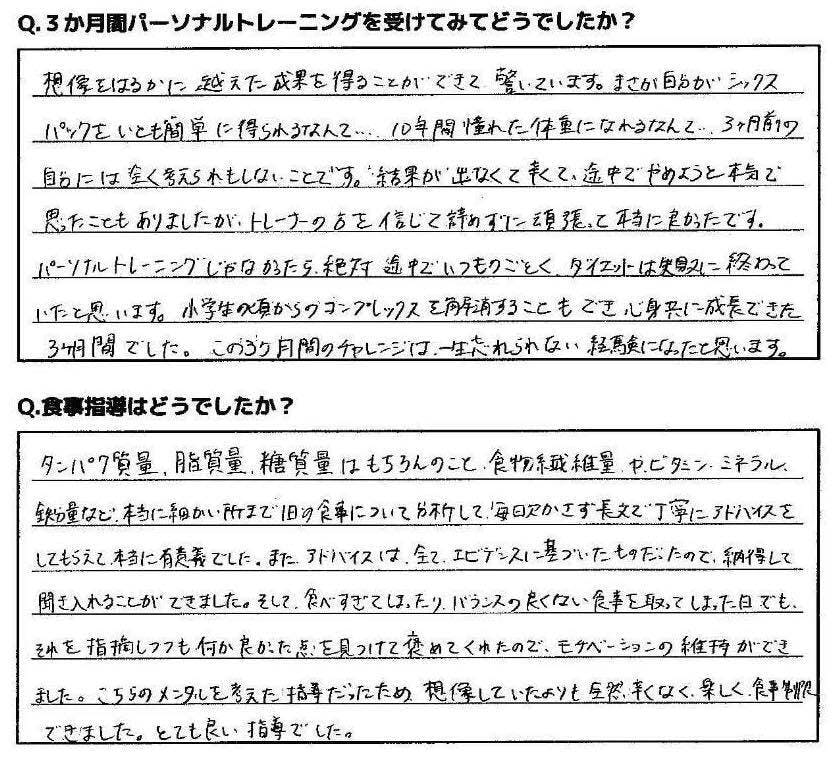 Q.３か月間パーソナルトレーニングを受けてみてどうでしたか？
想像をはるかに越えた成果を得ることができて、驚いています。まさか自分がシックス
パックをいとも簡単に得られるなんて… 10年間憧れた体重になれるなんて… 3ヶ月前の
自分には全く考えられもしないことです。結果が出なくて辛くて、途中でやめようと本気で
思ったこともありましたが、トレーナーの方を信じて諦めずに頑張って本当に良かったです。
パーソナルトレーニングじゃなかったら、絶対途中でいつものごとく、ダイエットは失敗に終わって
いたと思います。小学生の頃からのコンプレックスを解消することもでき心身共に成長できた
3ヶ月間でした。この3ヶ月間のチャレンジは、一生忘れられない経験になったと思います。
Q.食事指導はどうでしたか？
タンパク質量、脂質量、糖質量はもちろんのこと、食物繊維量や、ビタミン、ミネラル、
鉄分量など、本当に細かい所まで1日の食事について分析して、毎日欠かさず長文で丁寧にアドバイスを
してもらえて、本当に有意義でした。また、アドバイスは、全て、エビデンスに基づいたものだったので、納得して
聞き入れることができました。そして、食べすぎてしまったり、バランスの良くない食事を取ってしまった日でも、
それを指摘しつつも何か良かった点を見つけて褒めてくれたので、モチベーションの維持ができ
ました。こちらのメンタルを考えた指導だったため、想像していたよりも全然、辛くなく、楽しく、食事制限
できました。とても良い指導でした。